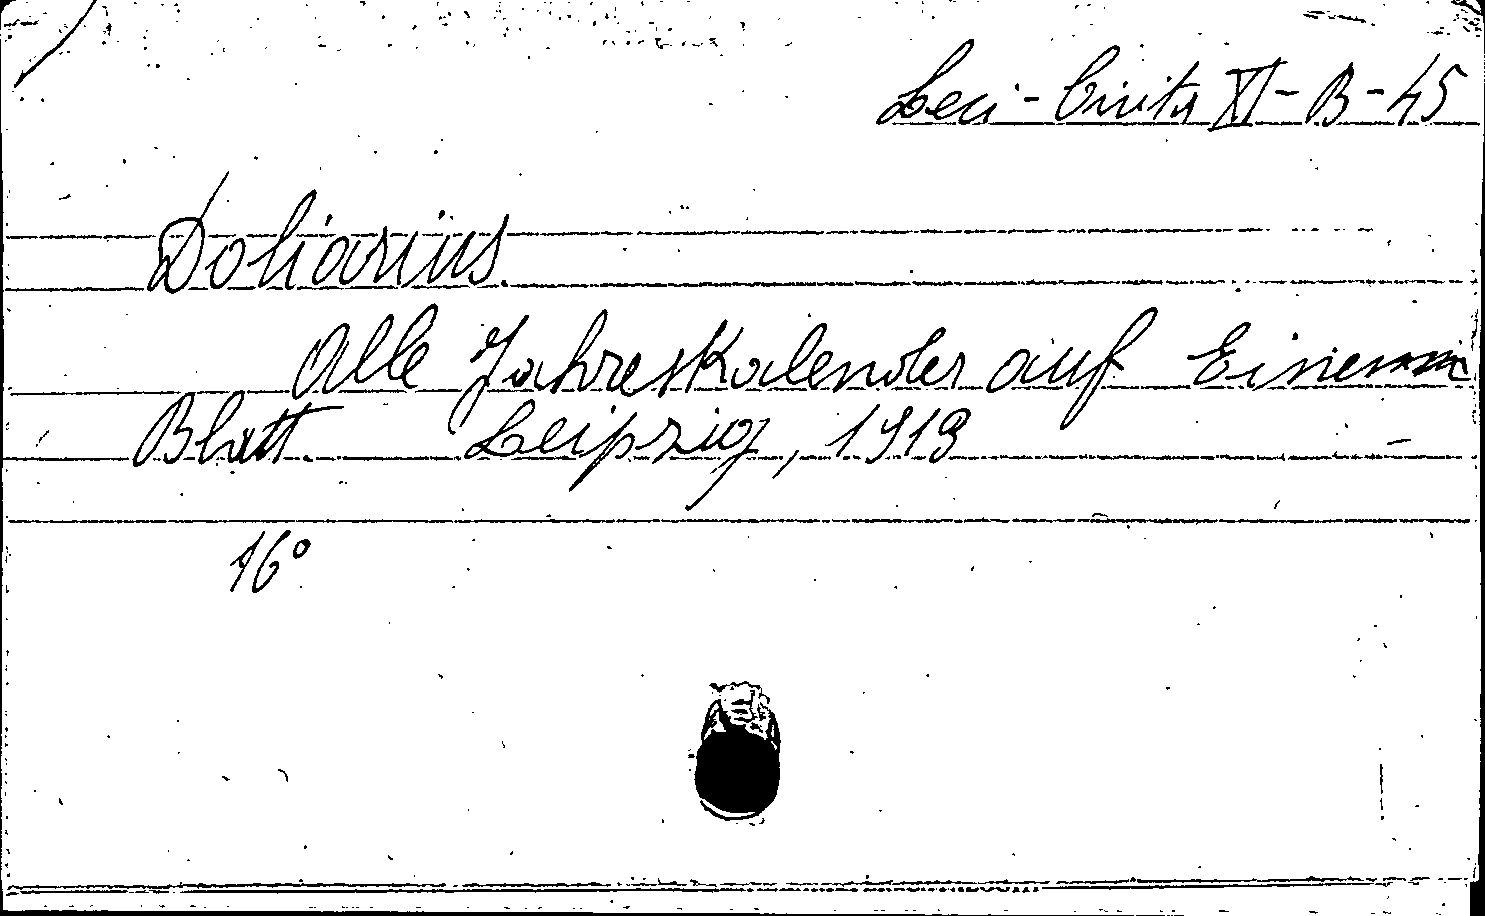 Levi-Civita XI-B-45
Doliarius.
Alle Jahreskalender auf Einem
Blatt. Leipzig, 1913
16°